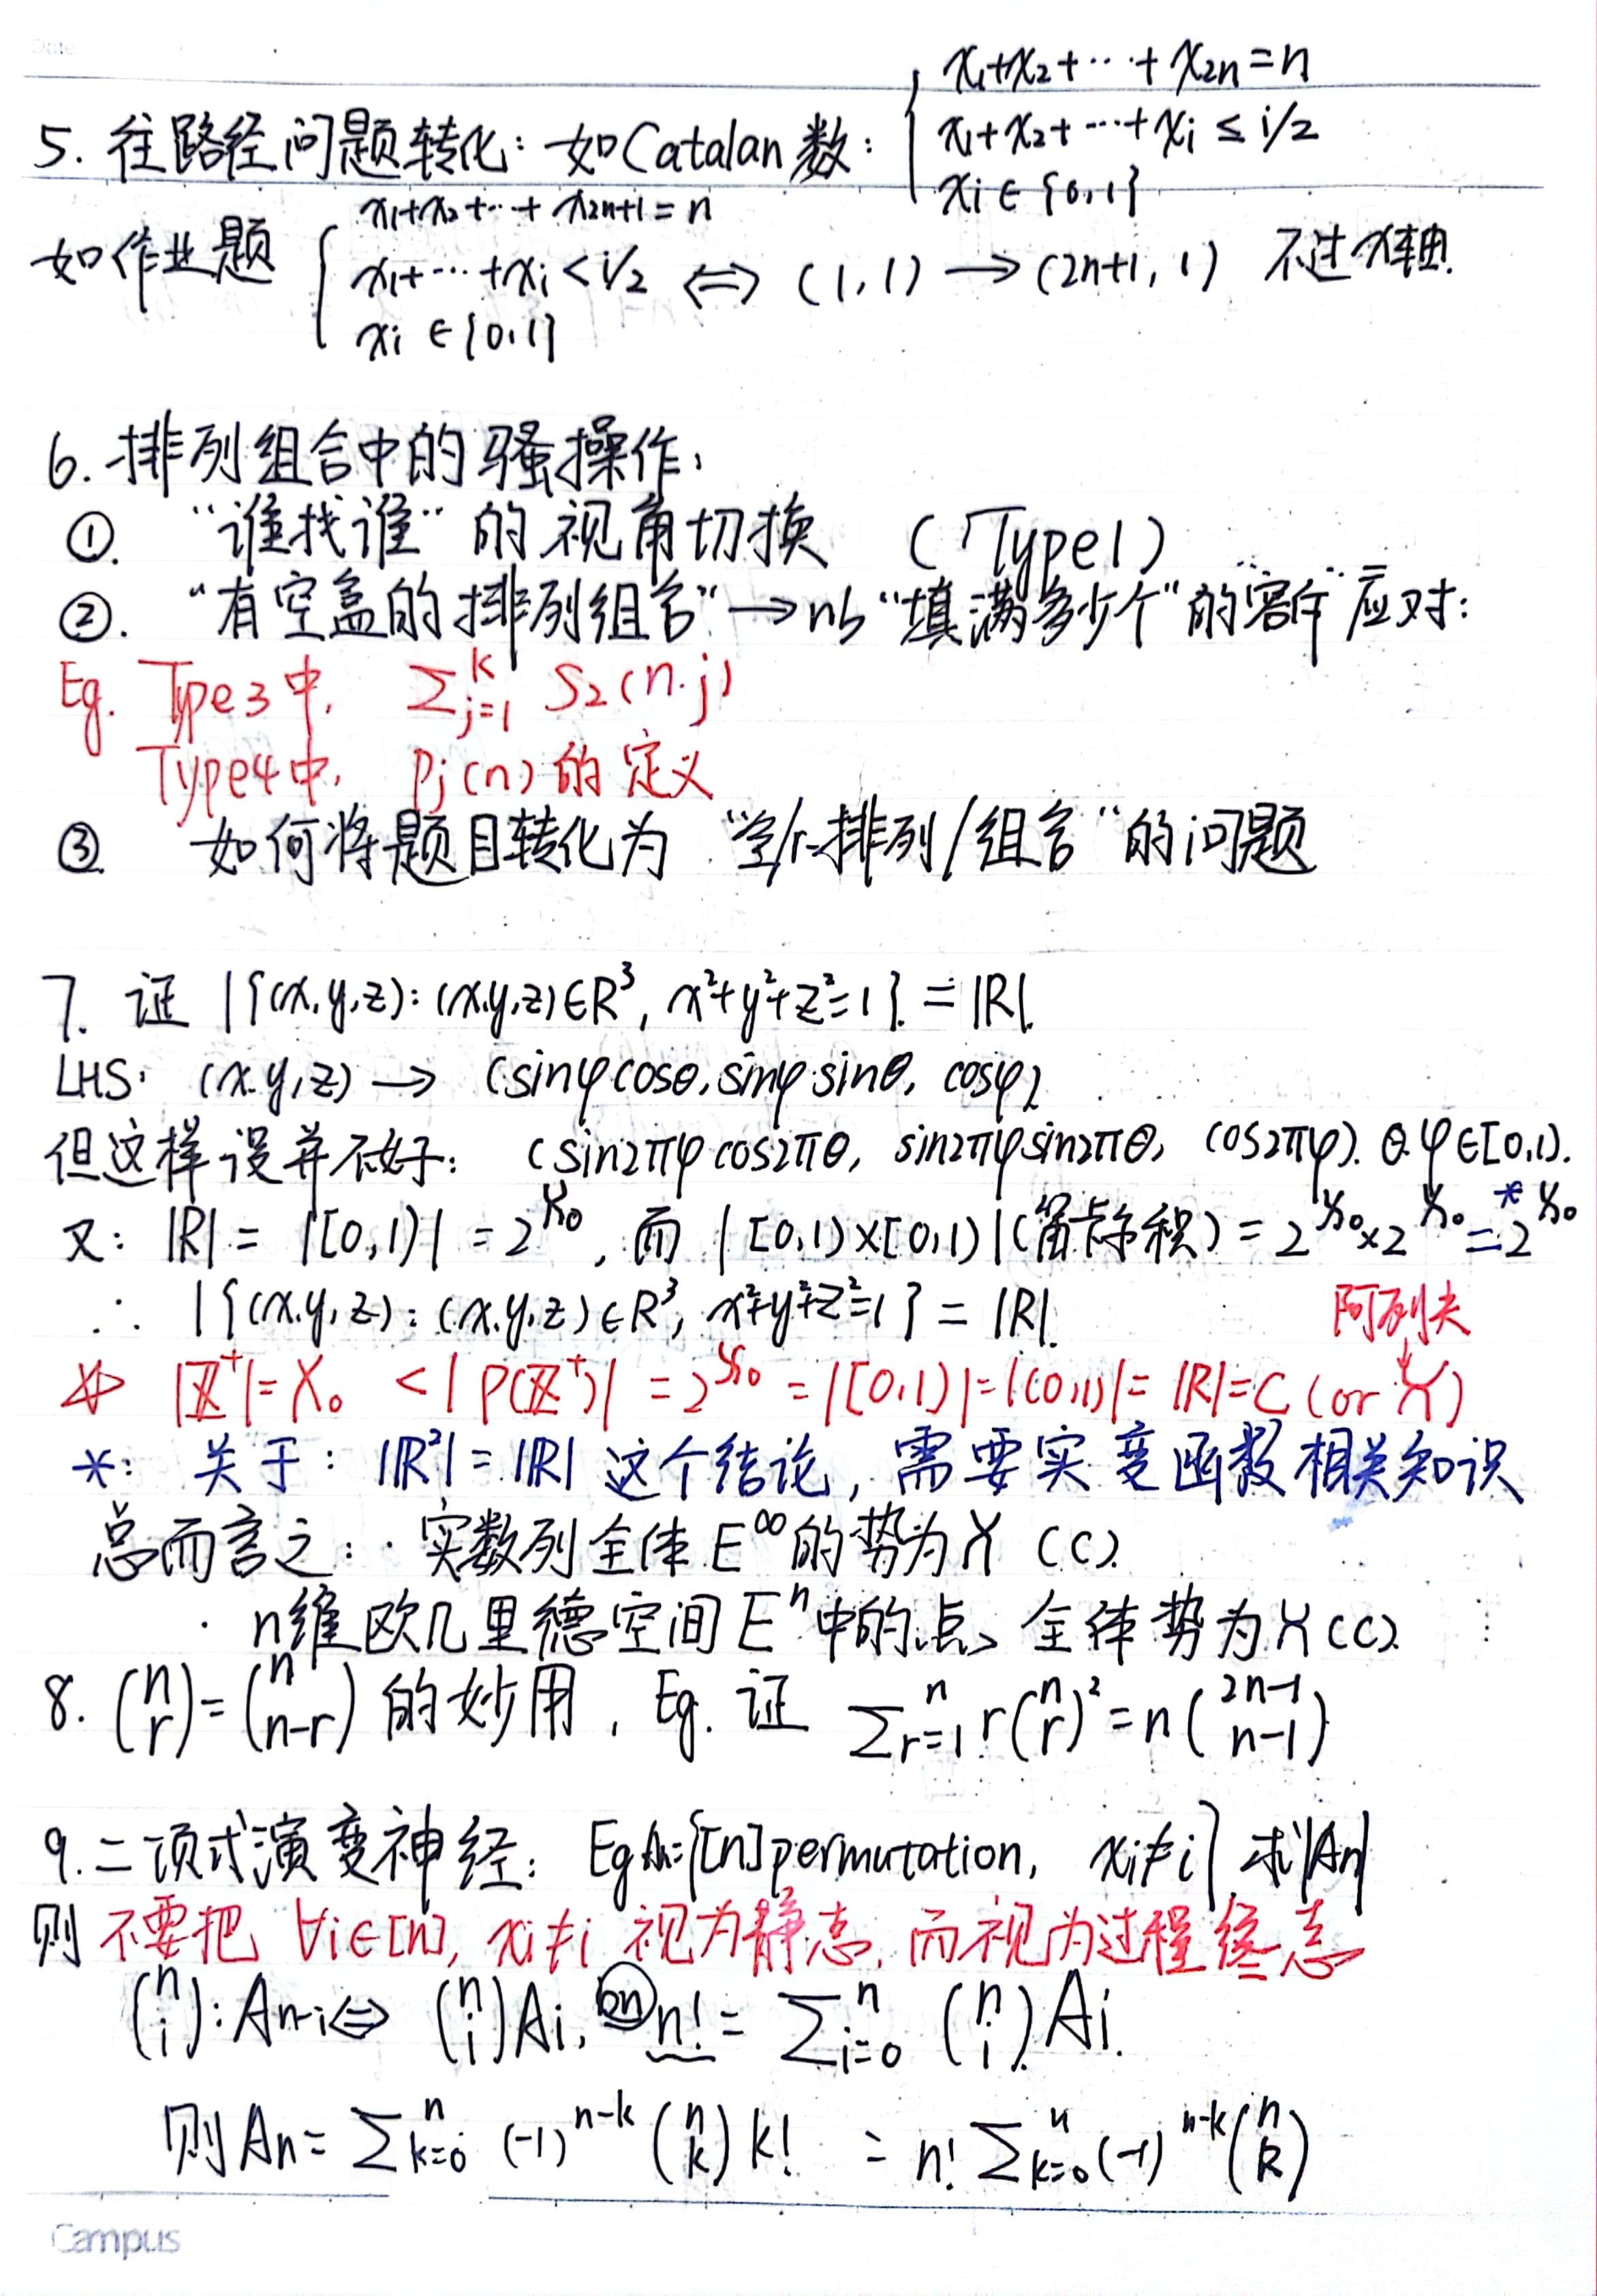 Date
x₁+x₂+⋯+x₂ₙ=n
5. 往路径问题转化: 如Catalan数: { x₁+x₂+⋯+xᵢ ≤ i/2
xᵢ ∈ {0,1}
x₁+x₂+⋯+x₂ₙ₊₁=n
如作业题 { x₁+⋯+xᵢ < i/2 ⇔ (1,1) → (2n+1, 1) 不过x轴.
xᵢ ∈ {0,1}
6. 排列组合中的骚操作:
①. “谁找谁”的视角切换 (Type1)
②. “有空盒的排列组合”→ 以“填满多少个”的 应对:
Eg. Type3中, ∑ⱼ₌₁ᵏ S₂(n,j)
Type4中, Pⱼ(n)的定义
③ 如何将题目转化为 “全/r-排列/组合”的问题
7. 证 |{(x,y,z): (x,y,z)∈R³, x²+y²+z²=1}| = |R|.
LHS: (x,y,z) → (sinφcosθ, sinφsinθ, cosφ)
但这样设并不好: (sin2πφcos2πθ, sin2πφsin2πθ, cos2πφ). θ,φ∈[0,1).
又: |R| = |[0,1)| = 2^ℵ₀, 而 |[0,1)×[0,1)|(笛卡尔积) = 2^ℵ₀×2^ℵ₀ =* 2^ℵ₀
∴ |{(x,y,z): (x,y,z)∈R³, x²+y²+z²=1}| = |R|. 阿列夫
☆ |Z⁺|=ℵ₀ < |P(Z⁺)| = 2^ℵ₀ = |[0,1)|=|(0,1)|= |R|=C (or ℵ)
*: 关于: |R²|=|R| 这个结论, 需要实变函数相关知识
总而言之: · 实数列全体E^∞的势为ℵ (C).
· n维欧几里德空间Eⁿ中的点、全体势为ℵ(C).
8. (n r)=(n n-r) 的妙用, Eg. 证 ∑ᵣ₌₁ⁿ r(n r)²=n(2n-1 n-1)
9. 二项式演变神经: Eg Aₙ={[n]permutation, xᵢ≠i}, 求|Aₙ|
则 不要把 ∀i∈[n], xᵢ≠i 视为静态, 而视为过程终态
(n i): Aₙ₋ᵢ ⇔ (n i)Aᵢ, n! = ∑ᵢ₌₀ⁿ (n i)Aᵢ.
则 Aₙ= ∑ₖ₌₀ⁿ (-1)ⁿ⁻ᵏ (n k) k! = n! ∑ₖ₌₀ⁿ (-1)ⁿ⁻ᵏ (n k)
Campus